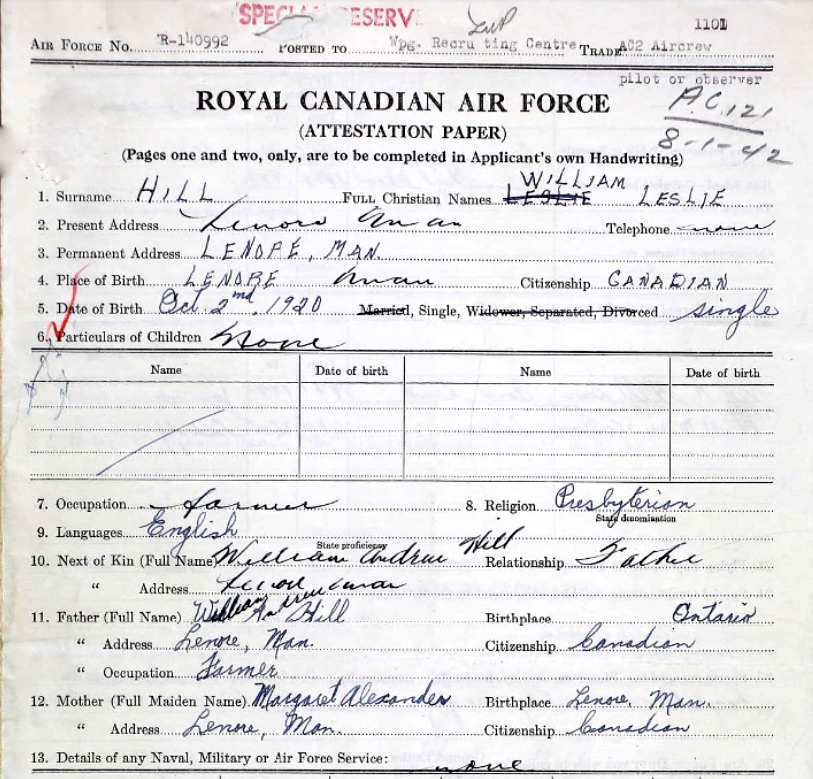 SPECIAL RESERVE
1101
AIR FORCE NO. R-140992 POSTED TO Wpg. Recruiting Centre TRADE AC2 Aircrew
pilot or observer
ROYAL CANADIAN AIR FORCE
A.C. 121
(ATTESTATION PAPER)
8-1-42
(Pages one and two, only, are to be completed in Applicant's own Handwriting)
WILLIAM
1. Surname HILL FULL Christian Names LESLIE LESLIE
2. Present Address Lenore Man Telephone none
3. Permanent Address LENORE, MAN.
4. Place of Birth LENORE Man Citizenship CANADIAN
5. Date of Birth Oct. 2nd, 1920 Married, Single, Widower, Separated, Divorced single
6. Particulars of Children None
Name Date of birth Name Date of birth
7. Occupation farmer 8. Religion Presbyterian
State denomination
9. Languages English
State proficiency
10. Next of Kin (Full Name) William Andrew Hill Relationship Father
" Address Lenore Man
11. Father (Full Name) William Andrew Hill Birthplace Ontario
" Address Lenore, Man. Citizenship Canadian
" Occupation Farmer
12. Mother (Full Maiden Name) Margaret Alexander Birthplace Lenore, Man.
" Address Lenore, Man. Citizenship Canadian
13. Details of any Naval, Military or Air Force Service: none